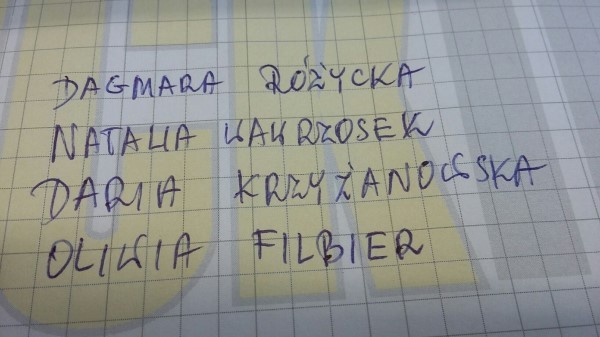 DAGMARA RÓŻYCKA
NATALIA WAWRZOSEK
DARIA KRZYŻANOWSKA
OLIWIA FILBIER